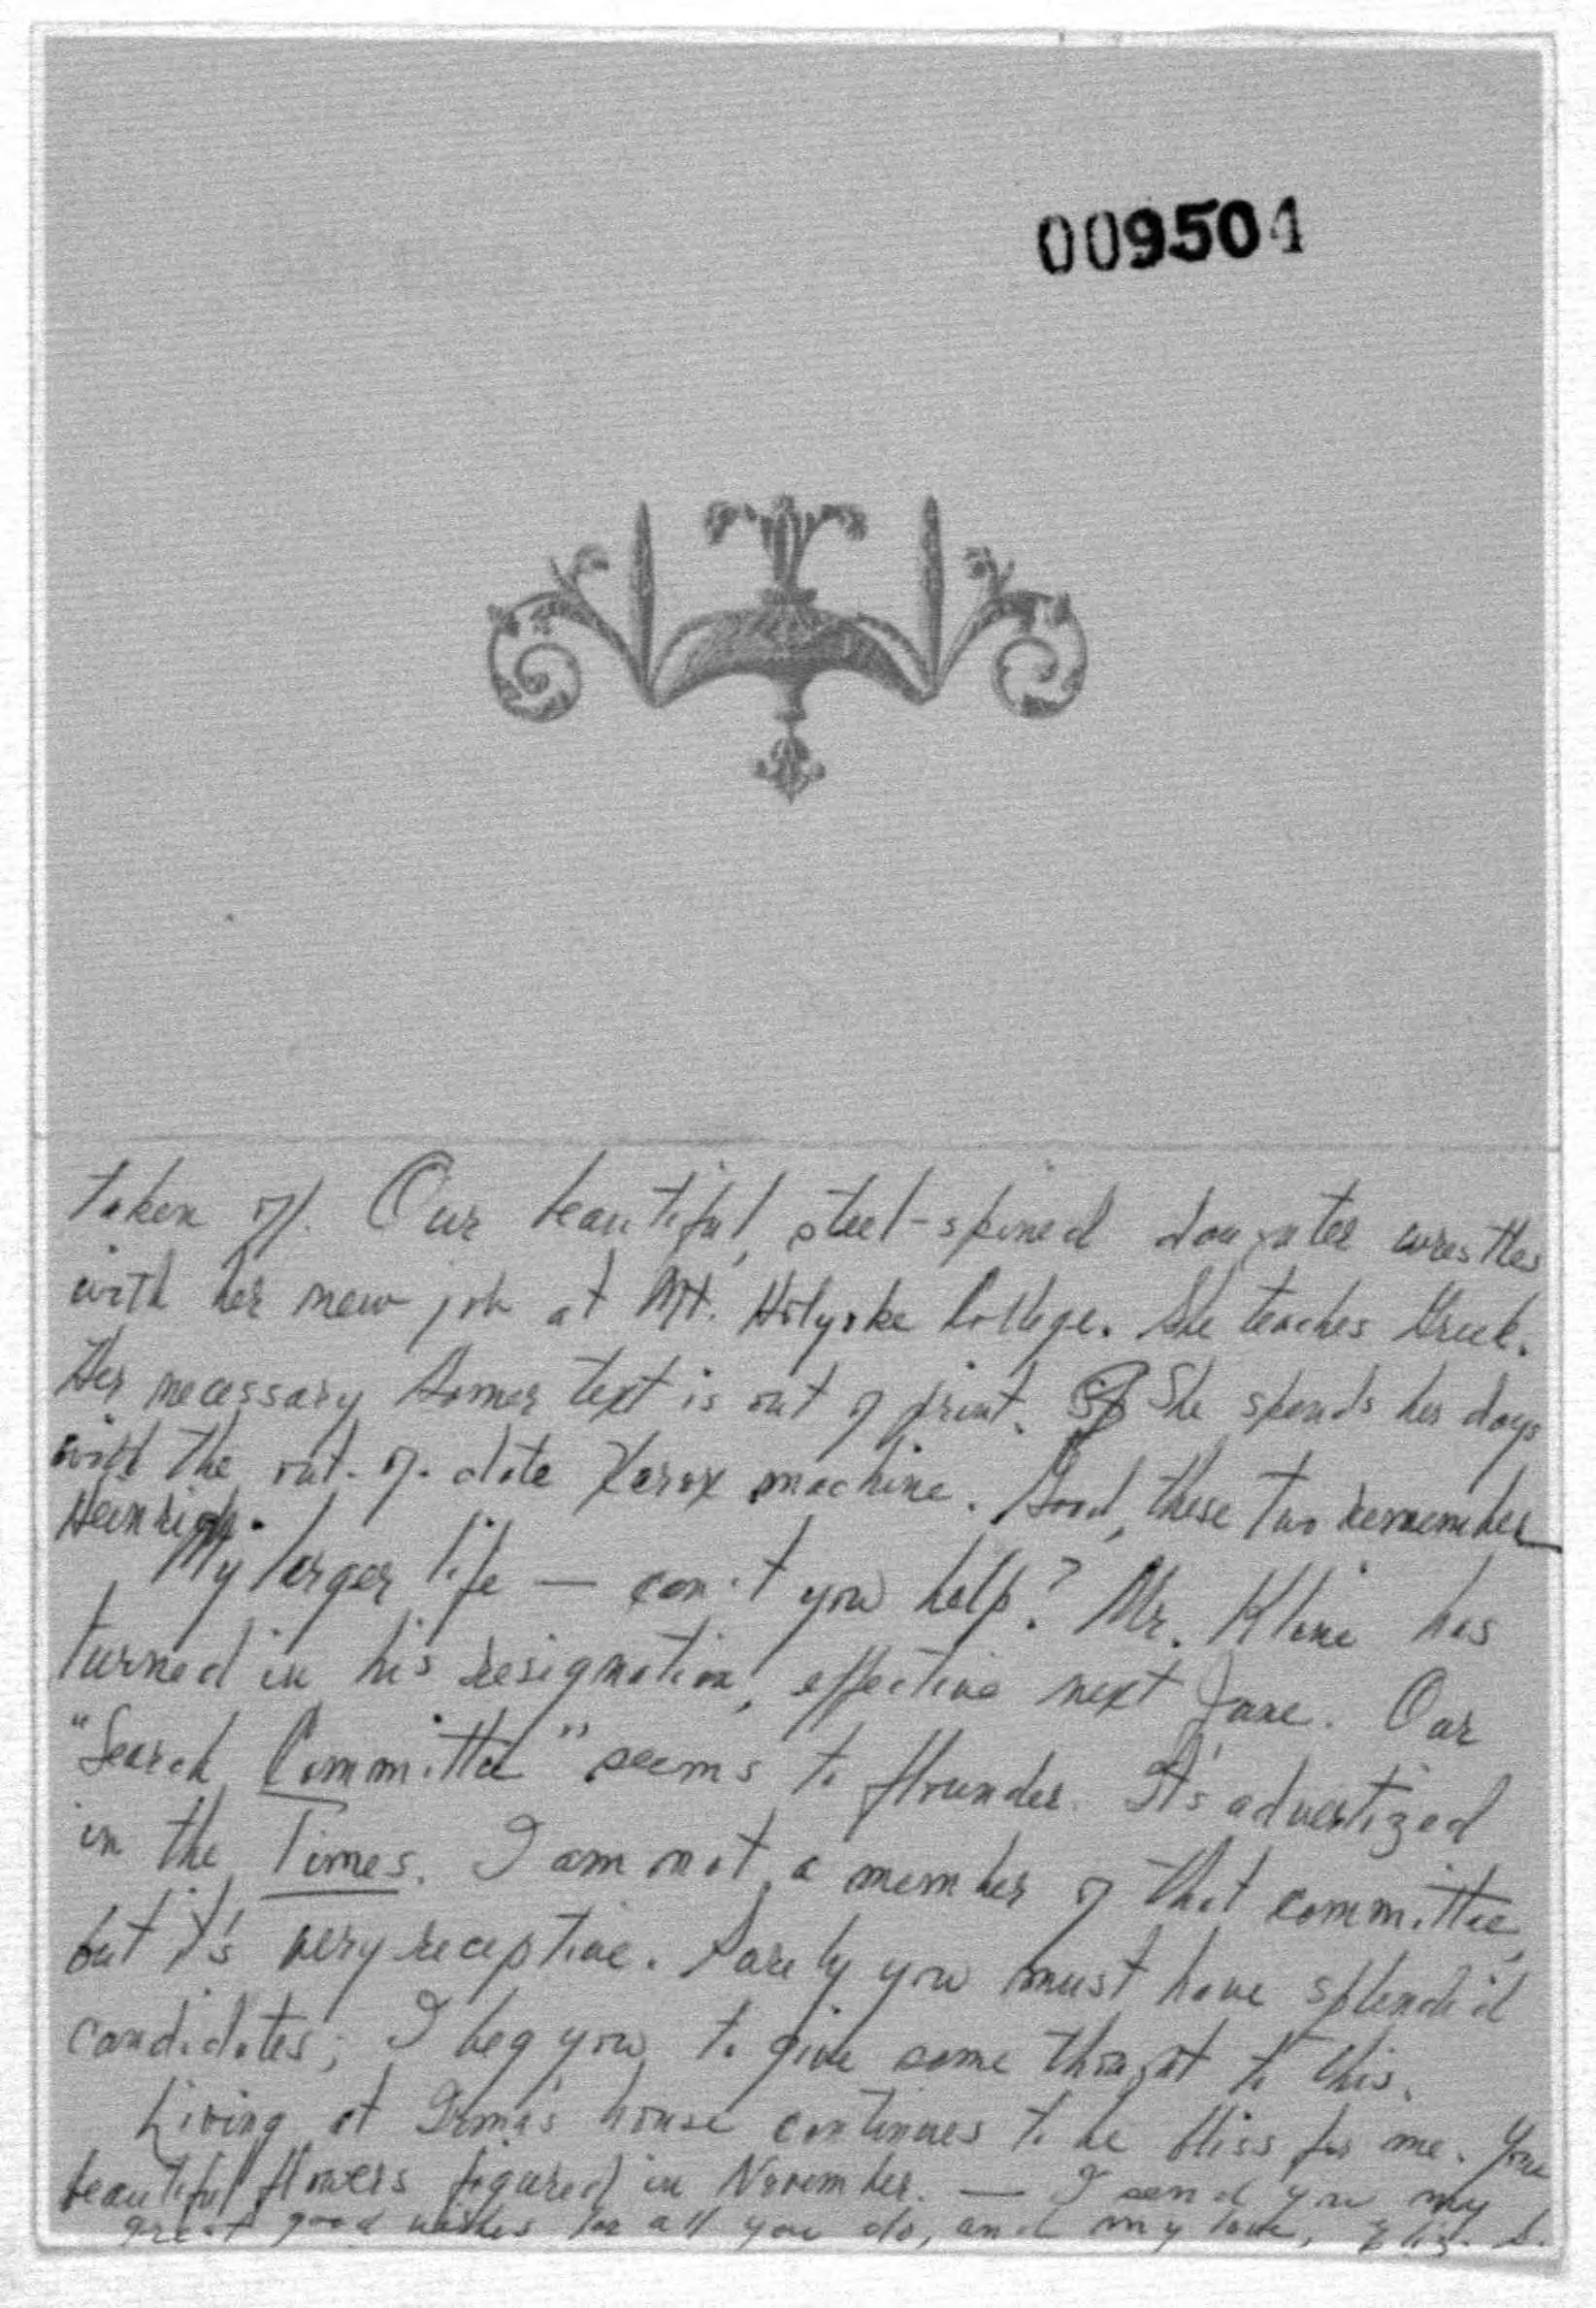 009504
taken off. Our beautiful, steel-spined daughter wrestles
with her new job at Mt. Holyoke College. She teaches Greek.
Her necessary Homer text is out of print. She spends her days
with the out-of-date Xerox machine. Good, these two remember
Heinrich.
My larger life — can't you help? Mr. Kline has
turned in his resignation, effective next June. Our
"Search Committee" seems to flounder. It's advertized
in the Times. I am not a member of that committee,
but it's very receptive. Surely you must have splendid
candidates; I beg you to give some thought to this.
Living at Irma's house continues to be bliss for me. Your
beautiful flowers figured in November. — I send you my
great good wishes for all you do, and my love, Eliz. S.